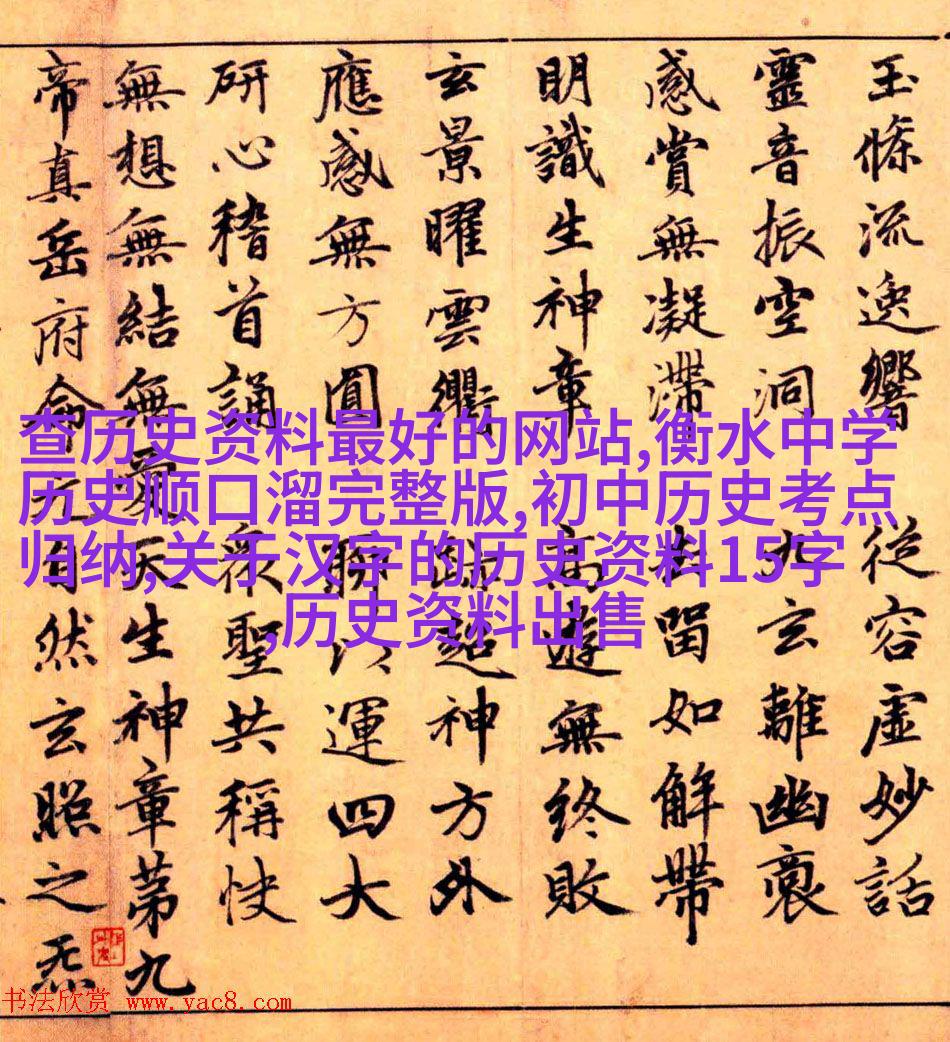 玉條流逸響
從容虛妙話
靈音振空洞
九玄離幽裒
感賞無凝滯
去留如解帶
明識生神章
高遊無終敗
玄景曜雲衢
跡超神方外
應感無方圓
聊以運四大
研心稽首誦
眾聖共稱快
無想無結無愛天生神章第九
帝真岳府侖元自然玄照之炁
查历史资料最好的网站,衡水中学
历史顺口溜完整版,初中历史考点
归纳,关于汉字的历史资料15字
,历史资料出售
书法欣赏 www.yac8.com